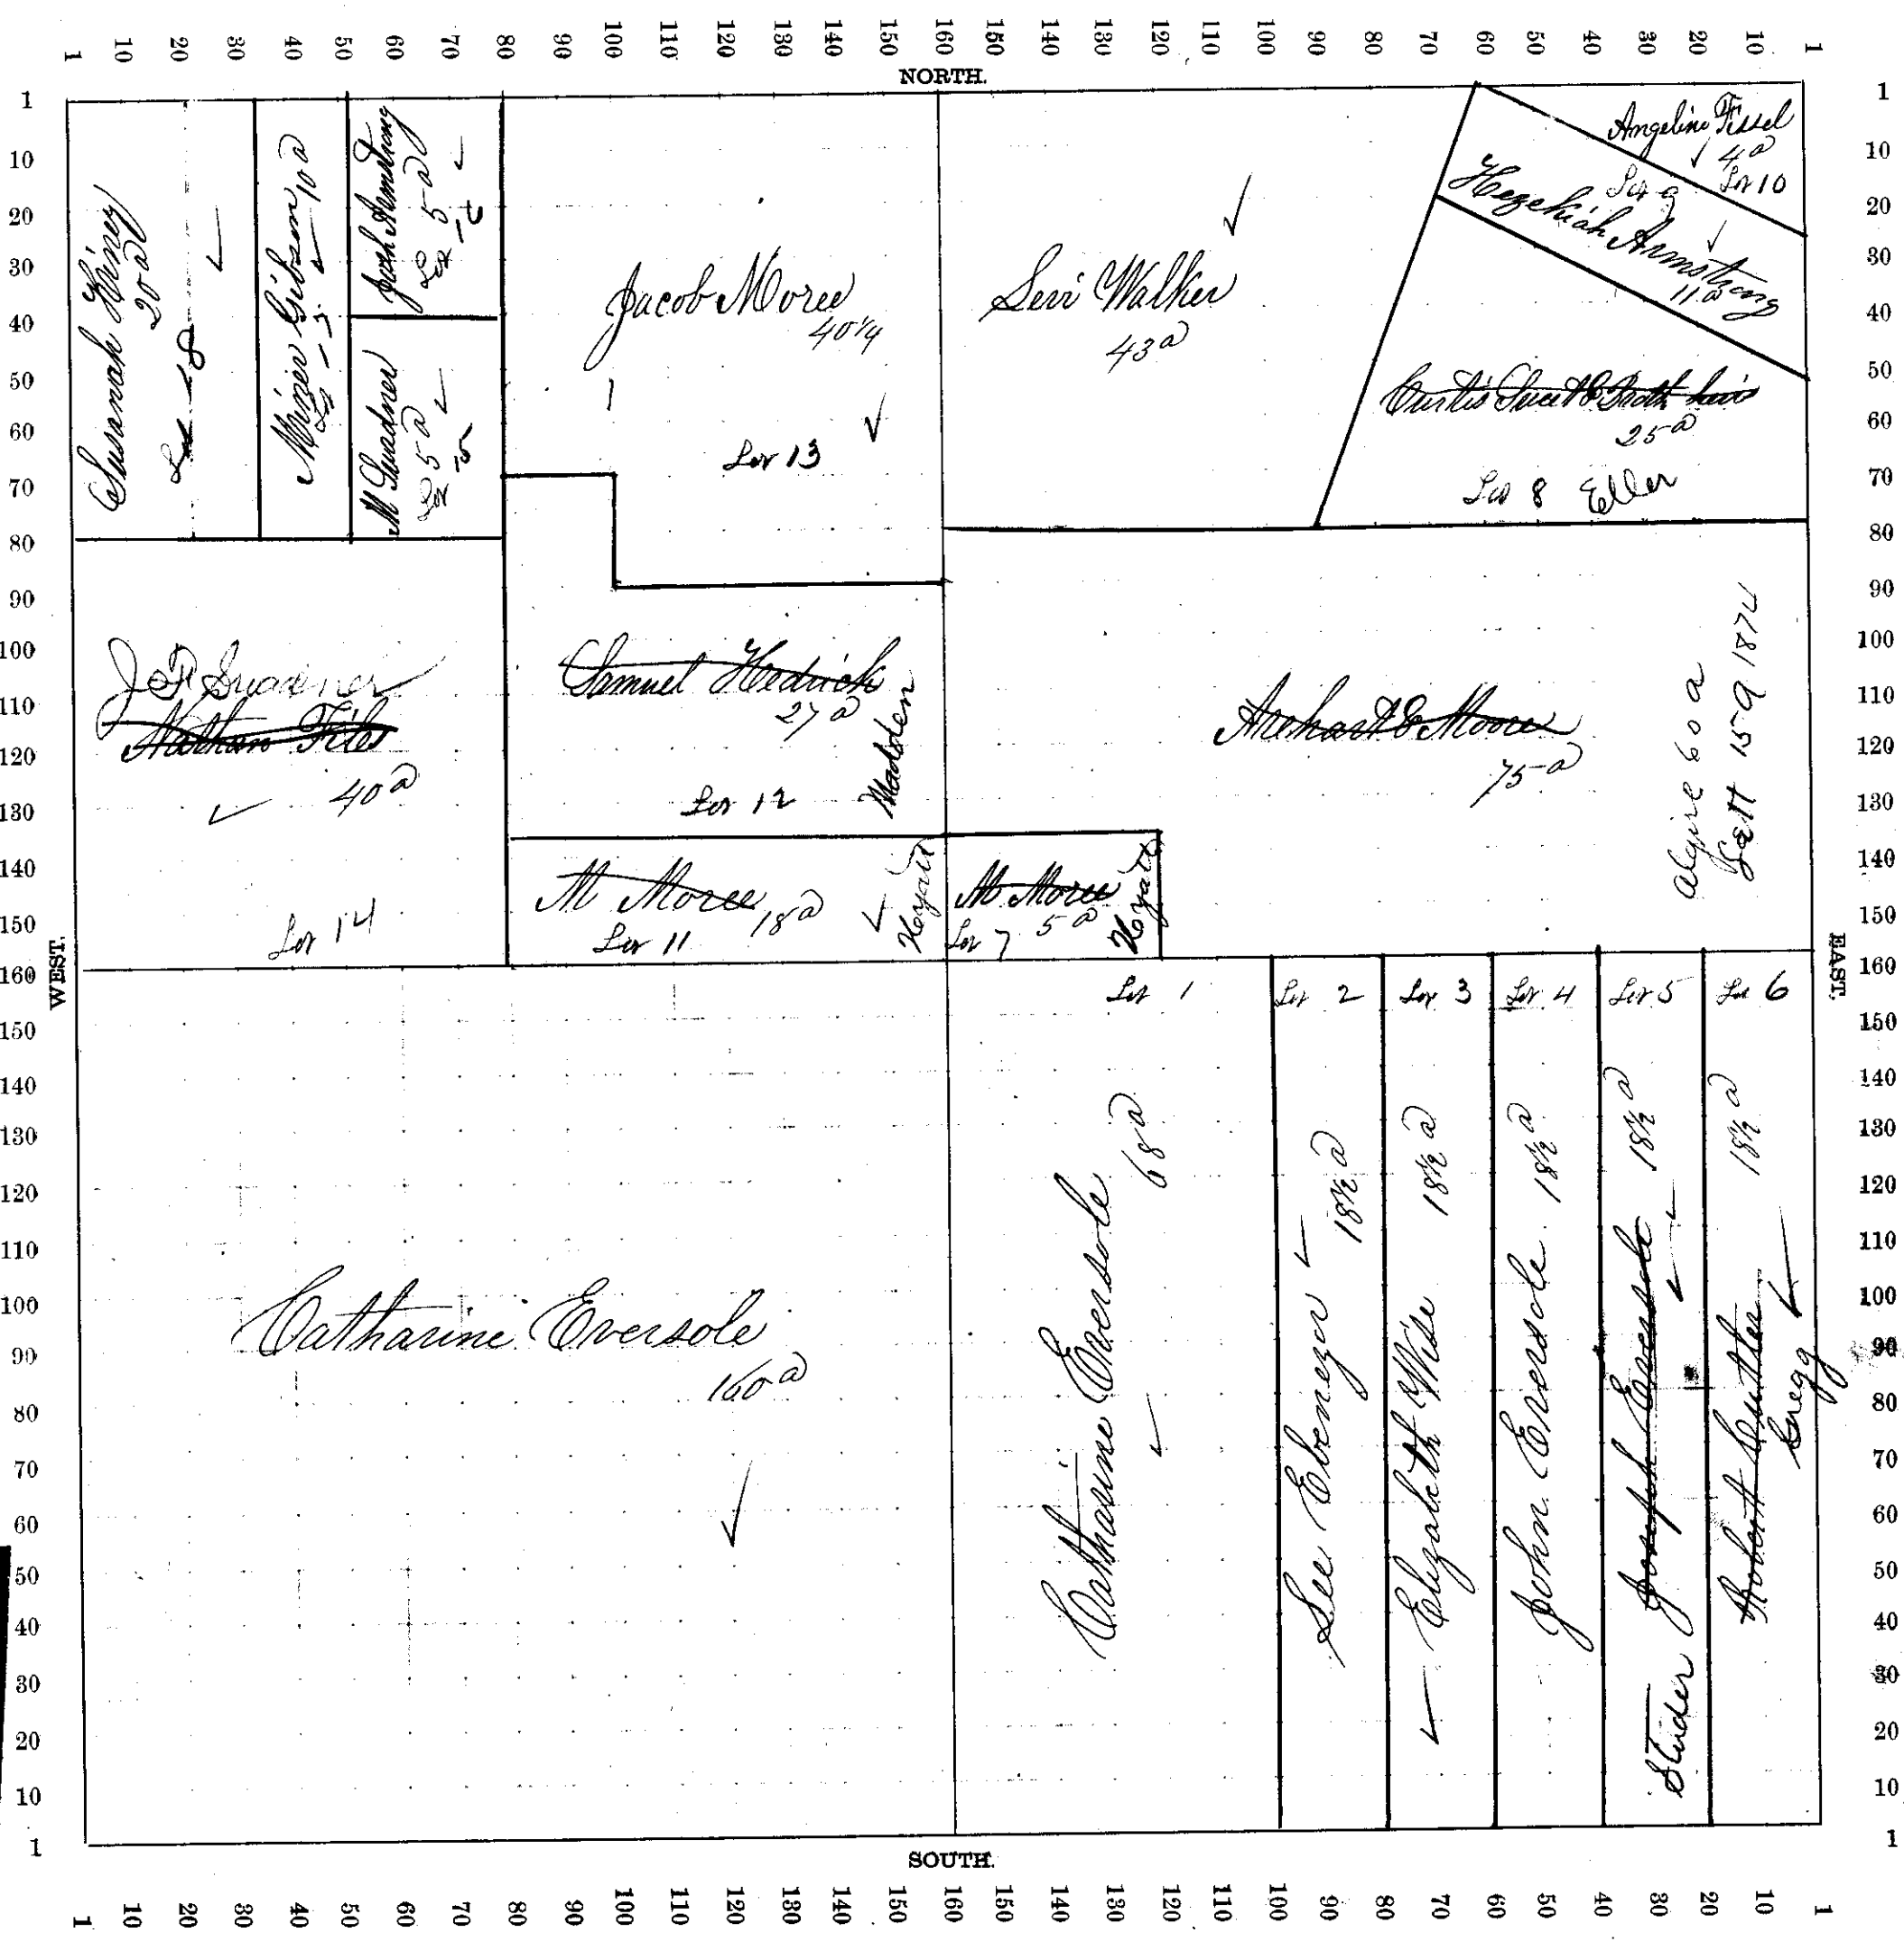 1 10 20 30 40 50 60 70 80 90 100 110 120 130 140 150 160 150 140 130 120 110 100 90 80 70 60 50 40 30 20 10 1
NORTH.
1 10 20 30 40 50 60 70 80 90 100 110 120 130 140 150 160 150 140 130 120 110 100 90 80 70 60 50 40 30 20 10 1
WEST.
Susannah Hiney
20 a
Miner Gibson 10 a
John Armstrong
5 a
M Swadner
5 a
Jacob Moree
40 1/4
Lot 13
Levi Walker
43 a
Angeline Fissel
4 a
Lot 10
Lot 9
Hezekiah Armstrong
11 a
Curtis
25 a
Lot 8 Eller
J F Swadner
Nathan Files
40 a
Lot 14
Samuel Hedrick
27 a
Madden
Lot 12
Arehart & Moore
75 a
Algire 60 a
1874
M Moree 18 a
Lot 11
Hyatt
M Moree
Lot 7 5 a
Hyatt
Catharine Eversole
160 a
Lot 1
Catharine Eversole
68 a
Lot 2
See Ebenezer
18 1/2 a
Lot 3
Elizabeth Wise
18 1/2 a
Lot 4
John Eversole
18 1/2 a
Lot 5
Joseph Eversole
18 1/2 a
Studer
Lot 6
Robert Cutler
18 1/2 a
Gregg
1 10 20 30 40 50 60 70 80 90 100 110 120 130 140 150 160 150 140 130 120 110 100 90 80 70 60 50 40 30 20 10 1
EAST.
SOUTH.
1 10 20 30 40 50 60 70 80 90 100 110 120 130 140 150 160 150 140 130 120 110 100 90 80 70 60 50 40 30 20 10 1